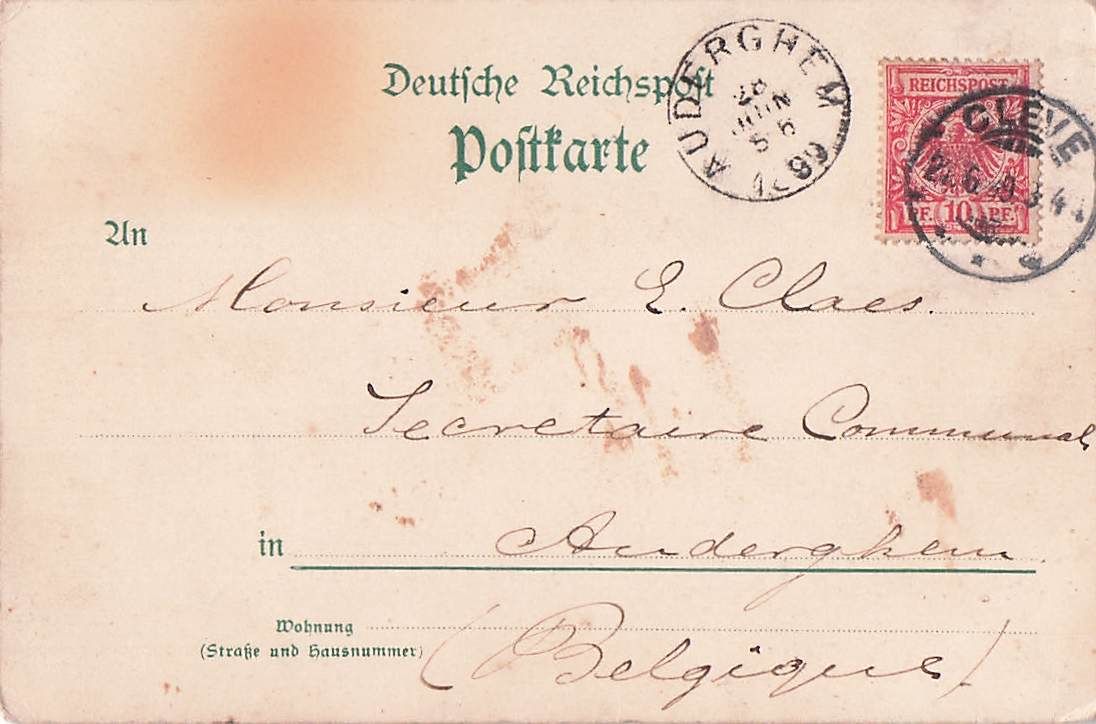 Deutsche Reichspost
Postkarte
AUDERGHEM
JUIN
REICHSPOST
PF. 10 PF.
CLEVE
An
Monsieur E. Claes.
Secretaire Communal
in Auderghem
Wohnung
(Straße und Hausnummer)
(Belgique)